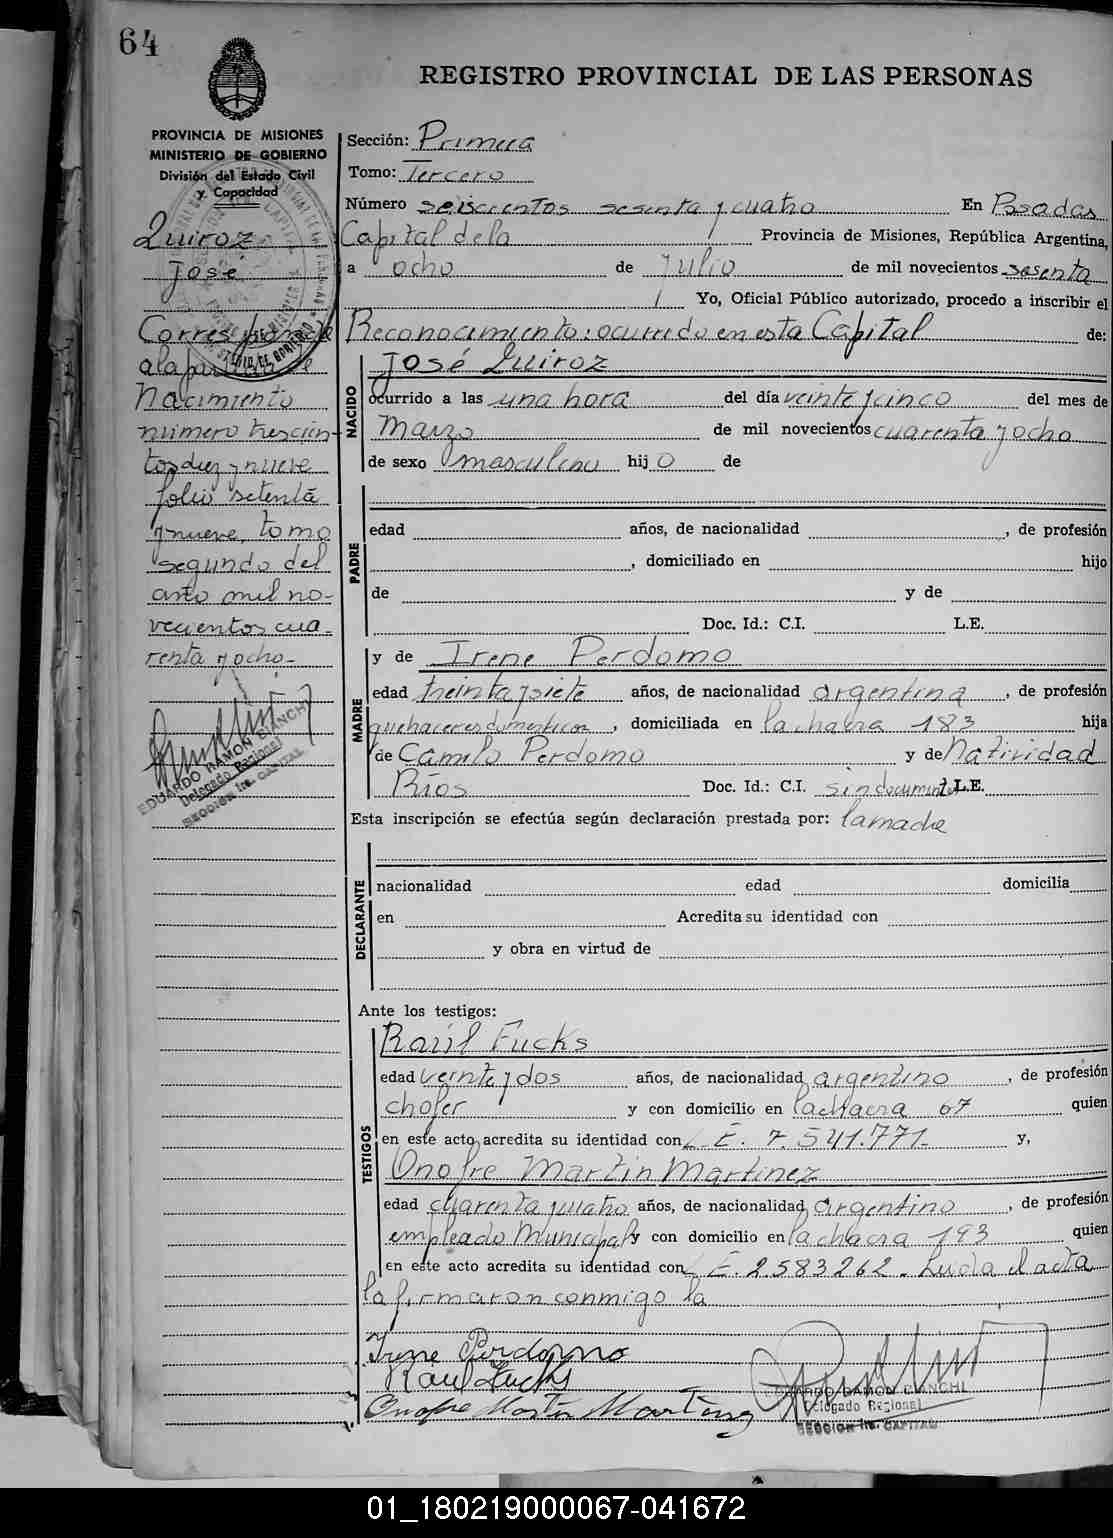 64
REGISTRO PROVINCIAL DE LAS PERSONAS
PROVINCIA DE MISIONES
MINISTERIO DE GOBIERNO
División del Estado Civil
y Capacidad
Quiroz
José
Corresponde
a la partida de
Nacimiento
número trescien-
tos diez y nueve
folio setenta
y nueve, tomo
segundo del
año mil no-
vecientos cua-
renta y ocho-
EDUARDO RAMON CIANCHI
Delegado Regional
SECCION 1ra. CAPITAL
Sección: Primera
Tomo: Tercero
Número seiscientos sesenta y cuatro En Posadas
Capital de la Provincia de Misiones, República Argentina,
a ocho de Julio de mil novecientos sesenta
Yo, Oficial Público autorizado, procedo a inscribir el
Reconocimiento: ocurrido en esta Capital de:
NACIDO
José Quiroz
ocurrido a las una hora del día veinte y cinco del mes de
Marzo de mil novecientos cuarenta y ocho
de sexo masculino hijo de
PADRE
edad años, de nacionalidad , de profesión
, domiciliado en hijo
de y de
Doc. Id.: C.I. L.E.
MADRE
y de Irene Perdomo
edad treinta y siete años, de nacionalidad argentina , de profesión
quehaceres domesticos , domiciliada en la chacra 183 hija
de Camilo Perdomo y de Natividad
Ríos Doc. Id.: C.I. sin documento L.E.
Esta inscripción se efectúa según declaración prestada por: la madre
DECLARANTE
nacionalidad edad domicilia
en Acredita su identidad con
y obra en virtud de
Ante los testigos:
TESTIGOS
Raúl Fucks
edad veinte y dos años, de nacionalidad argentino , de profesión
chofer y con domicilio en la chacra 67 quien
en este acto acredita su identidad con L.E. 7.541.771- y,
Onofre Martin Martinez
edad cuarenta y cuatro años, de nacionalidad argentino , de profesión
empleado Municipal y con domicilio en la chacra 193 quien
en este acto acredita su identidad con L.E. 2.583262. Leida el acta
la firmaron conmigo la
Irene Perdomo
Raul Fucks
Onofre Martin Martinez
EDUARDO RAMON CIANCHI
Delegado Regional
SECCION 1ra. CAPITAL
01_180219000067-041672